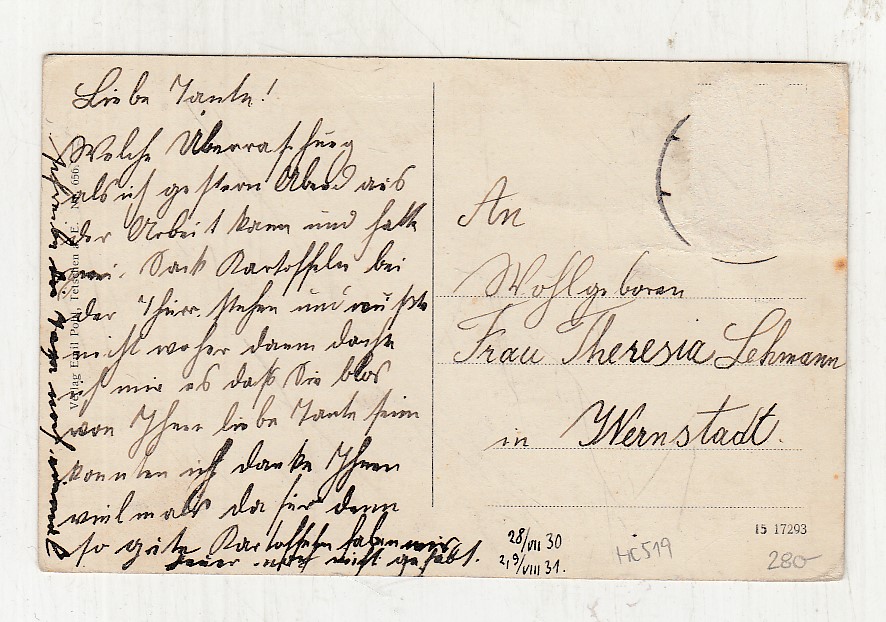 Liebe Tante!
Welche Überraschung
als ich gestern Abend aus
der Arbeit kam und hatte
zwei Sack Kartoffeln bei
der Thier stehen und wußte
nicht woher dann dachte
ich mir es daß Sie blos
von Ihnen liebe Tante sein
konnten ich danke Ihnen
vielmals dafür denn
so gute Kartoffeln haben wir
heuer noch nicht gehabt.
Verlag Emil Pohl, Tetschen a. E. Nr. 656.
An
Wohlgeboren
Frau Theresia Lehmann
in Wernstadt.
15 17293
28/VII 30
2,9/VIII 31.
HC519
280-